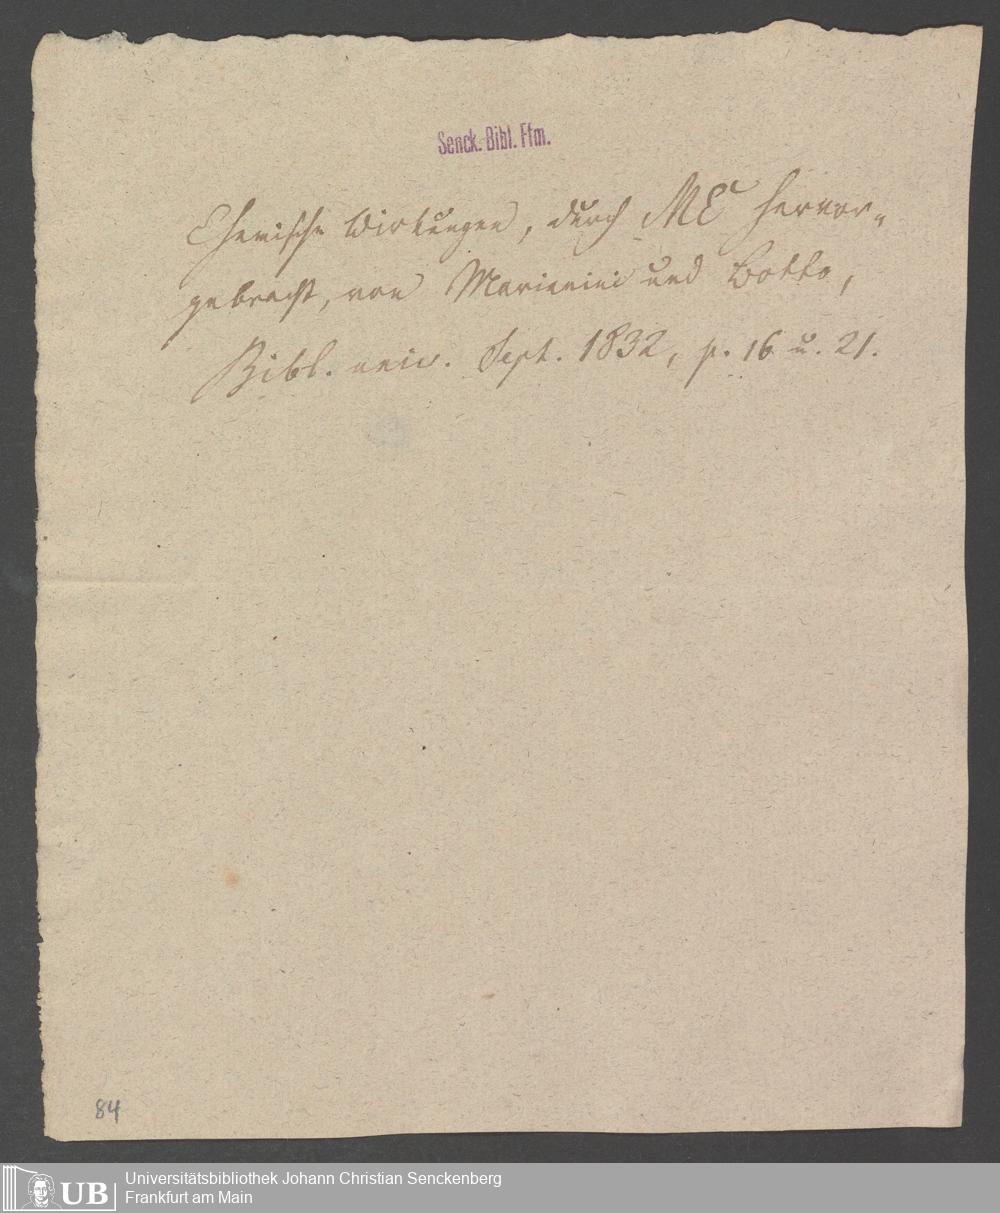 Senck. Bibl. Ffm.
Chemische Wirkungen, durch ME hervor-
gebracht, von Marianini und Botto,
Bibl. univ. Sept. 1832, p. 16 u. 21.
84
UB
Universitätsbibliothek Johann Christian Senckenberg
Frankfurt am Main